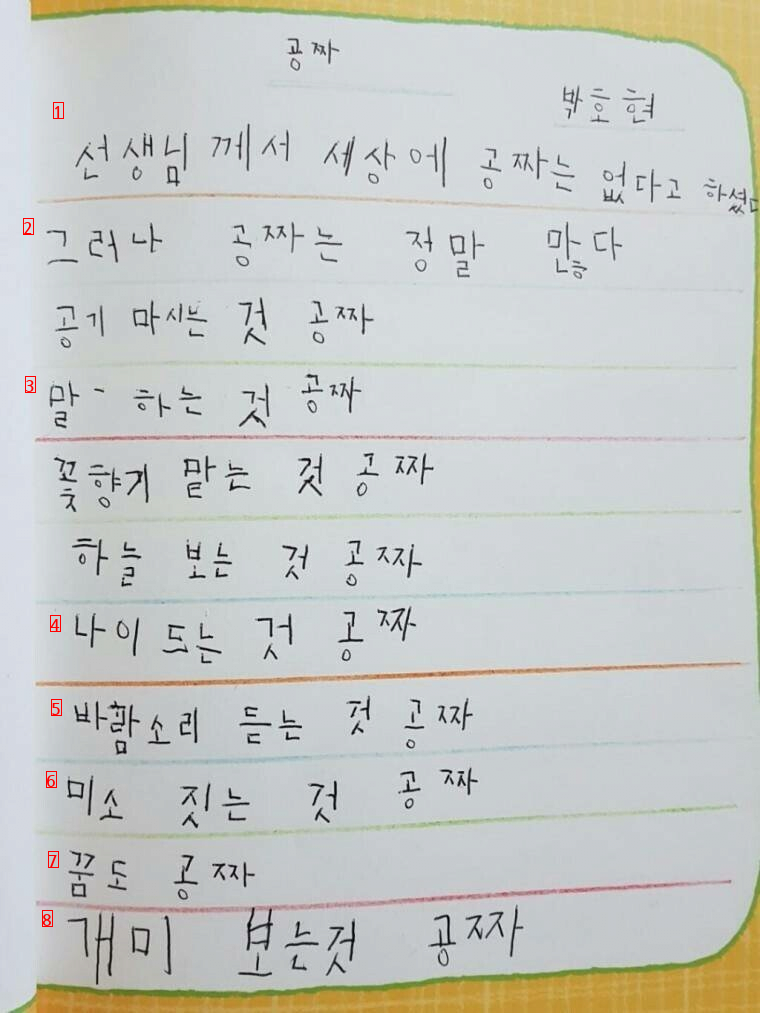 공짜
박호현
1
선생님 께서 세상에 공짜는 없다고 하셨다
2
그러나 공짜는 정말 많다
공기 마시는 것 공짜
3
말- 하는 것 공짜
꽃향기 맡는 것 공짜
하늘 보는 것 공짜
4
나이 드는 것 공짜
5
바람소리 듣는 것 공짜
6
미소 짓는 것 공짜
7
꿈도 공짜
8
개미 보는것 공짜